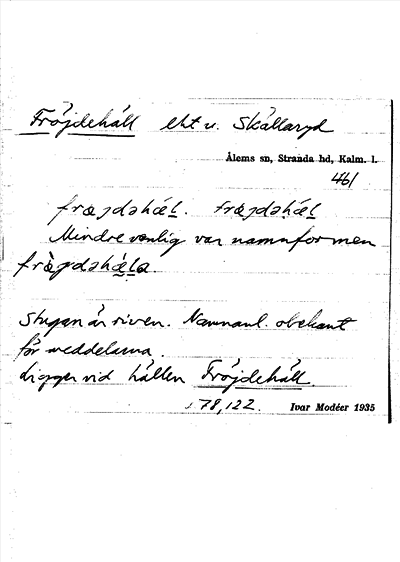 Fröjdehäll lht u. Skällaryd
Ålems sn, Stranda hd, Kalm. l.
461
frøjdəhæl. frøjdəhæl
Mindre vanlig var namnformen
frøjdəhæla.
Stugan är riven. Namnanl. obekant
för meddelarna.
Ligger vid hällen Fröjdehäll
178,122. Ivar Modéer 1935